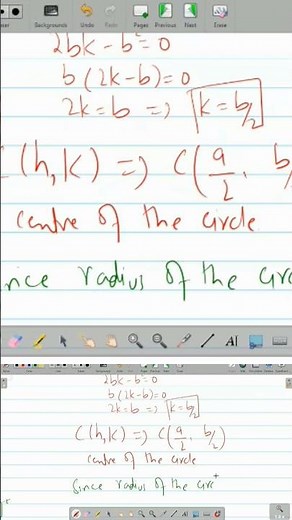 Backgrounds Undo Redo Pages Previous Next
2bk - b² = 0
b (2k-b) = 0
2k = b => k = b/2
C(h,k) => C(a/2, b/
centre of the circle
since radius of the circ
2bk - b² = 0
b (2k-b) = 0
2k = b => k = b/2
C(h,k) => C(a/2, b/2)
centre of the circle
Since radius of the circ